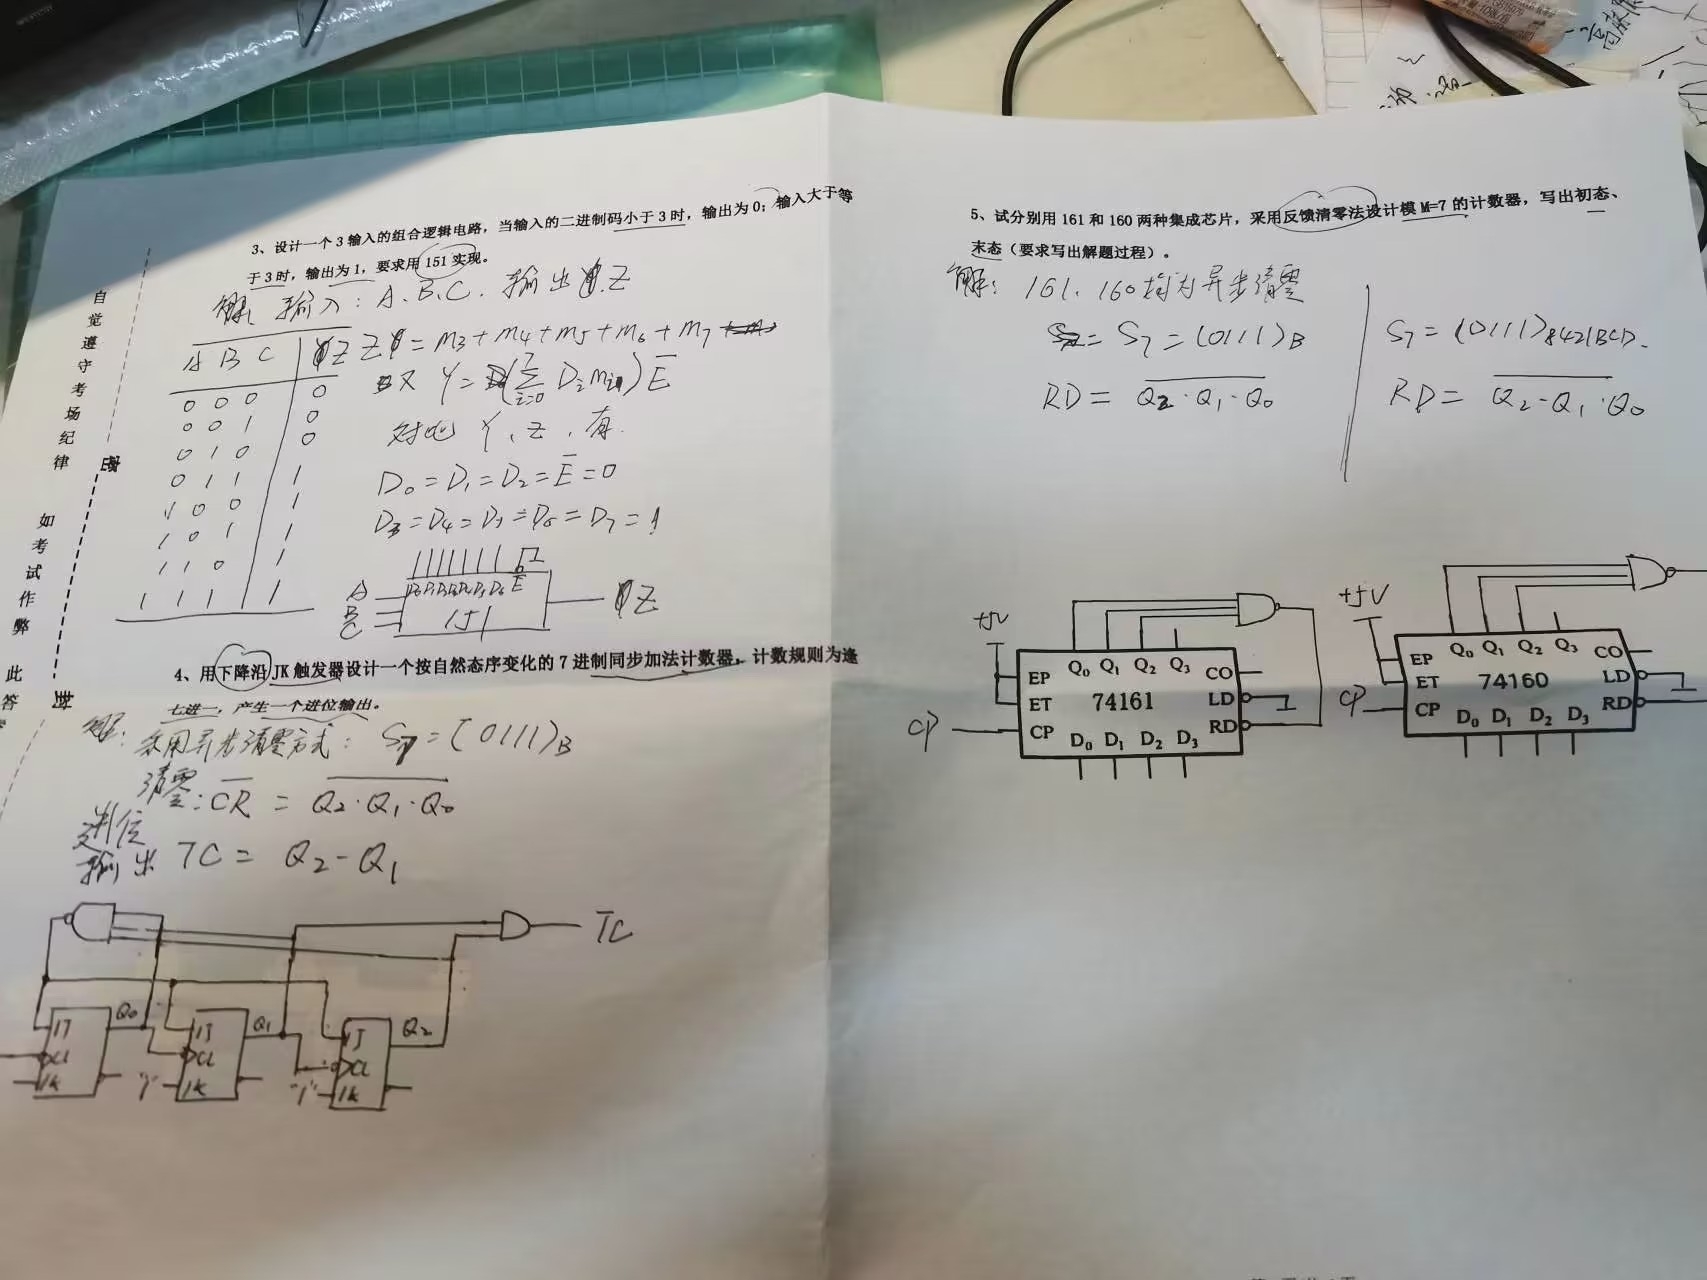 自觉遵守考场纪律 如考试作弊 此答
密
封
3、设计一个3输入的组合逻辑电路，当输入的二进制码小于3时，输出为0；输入大于等
于3时，输出为1，要求用151实现。
解: 输入：A、B、C. 输出 Z
A B C Z
0 0 0 0
0 0 1 0
0 1 0 0
0 1 1 1
1 0 0 1
1 0 1 1
1 1 0 1
1 1 1 1
Z = m3+m4+m5+m6+m7
又 Y=(∑ Di mi) E̅
i=0
7
对比 Y、Z，有.
D0=D1=D2=E̅=0
D3=D4=D5=D6=D7=1
A
B
C
E̅
151
Z
4、用下降沿JK触发器设计一个按自然态序变化的7进制同步加法计数器，计数规则为逢
七进一，产生一个进位输出。
解：采用异步清零方式: S7=(0111)B
清零: C̅R̅ = Q2·Q1·Q0
进位
输出 TC= Q2-Q1
TC
1J Q0 1J Q1 1J Q2
C1 C1 C1
1K "1" 1K "1" 1K
5、试分别用161和160两种集成芯片，采用反馈清零法设计模M=7的计数器，写出初态、
末态（要求写出解题过程）。
解：161、160均为异步清零
S7=(0111)B
RD= Q2·Q1·Q0
S7=(0111)8421BCD.
RD= Q2-Q1·Q0
+5V
EP Q0 Q1 Q2 Q3 CO
ET 74161 LD
CP CP D0 D1 D2 D3 RD
+5V
EP Q0 Q1 Q2 Q3 CO
ET 74160 LD
CP CP D0 D1 D2 D3 RD